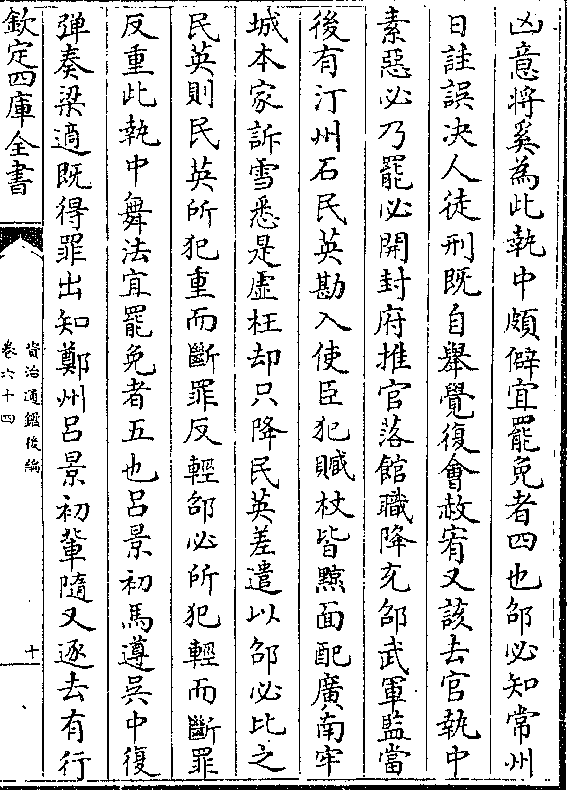 凶意將奚為此執中頗僻宜罷免者四也邵必知常州
日詿誤决人徒刑既自舉覺復會赦宥又該去官執中
素惡必乃罷必開封府推官落館職降充邵武軍監當
後有汀州石民英勘入使臣犯贓杖皆黥面配廣南牢
城本家訴雪悉是虛枉却只降民英差遣以邵必比之
民英則民英所犯重而斷罪反輕邵必所犯輕而斷罪
反重此執中舞法宜罷免者五也呂景初馬遵吳中復
弹奏梁適既得罪出知鄭州呂景初軰隨又逐去有行
欽定四庫全書
資治通鑑後編
卷六十四
十